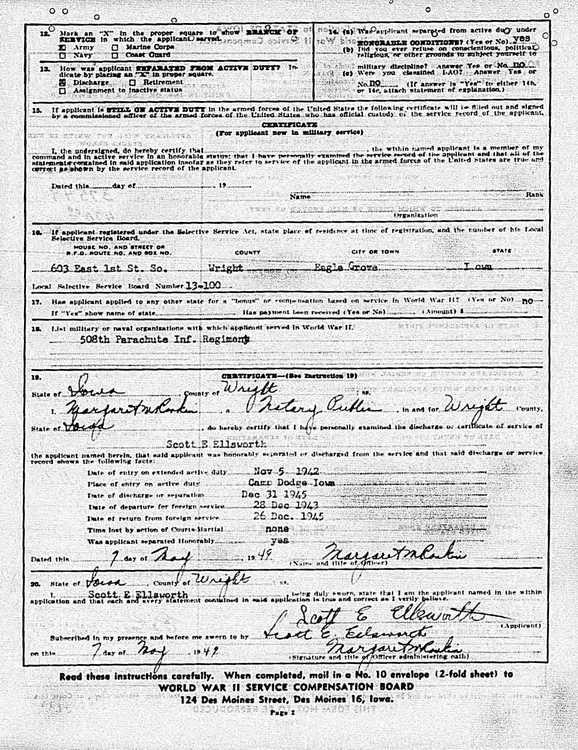 12. Mark an "X" in the proper square to show BRANCH OF
SERVICE in which the applicant served.
☒ Army ☐ Marine Corps
☐ Navy ☐ Coast Guard
13. How was applicant SEPARATED FROM ACTIVE DUTY? In-
dicate by placing an "X" in proper square.
☒ Discharge ☐ Retirement
☐ Assignment to inactive status
14. (a) Was applicant separated from active duty under
HONORABLE CONDITIONS? (Yes or No) yes
(b) Did you ever refuse on conscientious, political,
religious, or other grounds to subject yourself to
military discipline? Answer Yes or No. no
(c) Were you classified 1-AO? Answer Yes or
No. no (If answer is "Yes" to either 14b,
or 14c, attach statement of explanation.)
15. If applicant is STILL ON ACTIVE DUTY in the armed forces of the United States the following certificate will be filled out and signed
by a commissioned officer of the armed forces of the United States who has official custody of the service record of the applicant.
CERTIFICATE
(For applicant now in military service)
I, the undersigned, do hereby certify that , the within named applicant is a member of my
command and in active service in an honorable status; that I have personally examined the service record of the applicant and that all of the
statements contained in said application insofar as they refer to service of the applicant in the armed forces of the United States are true and
correct as shown by the service record of the applicant.
Dated this day of , 19
Name Rank
Organization
16. If applicant registered under the Selective Service Act, state place of residence at time of registration, and the number of his Local
Selective Service Board.
HOUSE NO. AND STREET OR
R.F.D. ROUTE NO. AND BOX NO. COUNTY CITY OR TOWN STATE
603 East 1st St. So. Wright Eagle Grove Iowa
Local Selective Service Board Number 13-100
17. Has applicant applied to any other state for a "bonus" or compensation based on service in World War II? (Yes or No) no
If "Yes" show name of state Has payment been received (Yes or No) (Amount) $
18. List military or naval organizations with which applicant served in World War II.
508th Parachute Inf. Regiment
19. CERTIFICATE—(See Instruction 19)
State of Iowa County of Wright ; ss.
I, Margaret M Rankin, a Notary Public, in and for Wright County,
State of Iowa, do hereby certify that I have personally examined the discharge or certificate of service of
Scott E Ellsworth
the applicant named herein, that said applicant was honorably separated or discharged from the service and that said discharge or service
record shows the following facts:
Date of entry on extended active duty Nov 5 1942
Place of entry on active duty Camp Dodge Iowa
Date of discharge or separation Dec 31 1945
Date of departure for foreign service 28 Dec 1943
Date of return from foreign service 26 Dec. 1945
Time lost by action of Courts-Martial none
Was applicant separated Honorably yes
Dated this 7 day of May, 1949. Margaret M Rankin
(Name and title of Officer)
20. State of Iowa, County of Wright, ss.
I, Scott E Ellsworth, being duly sworn, state that I am the applicant named in the within
application and that each and every statement contained in said application is true and correct as I verily believe.
Scott E Ellsworth
(Applicant)
Subscribed in my presence and before me sworn to by Scott E. Ellsworth
on this 7 day of May, 1949 Margaret M Rankin
(Signature and title of Officer administering oath)
Read these instructions carefully. When completed, mail in a No. 10 envelope (2-fold sheet) to
WORLD WAR II SERVICE COMPENSATION BOARD
124 Des Moines Street, Des Moines 16, Iowa.
Page 2